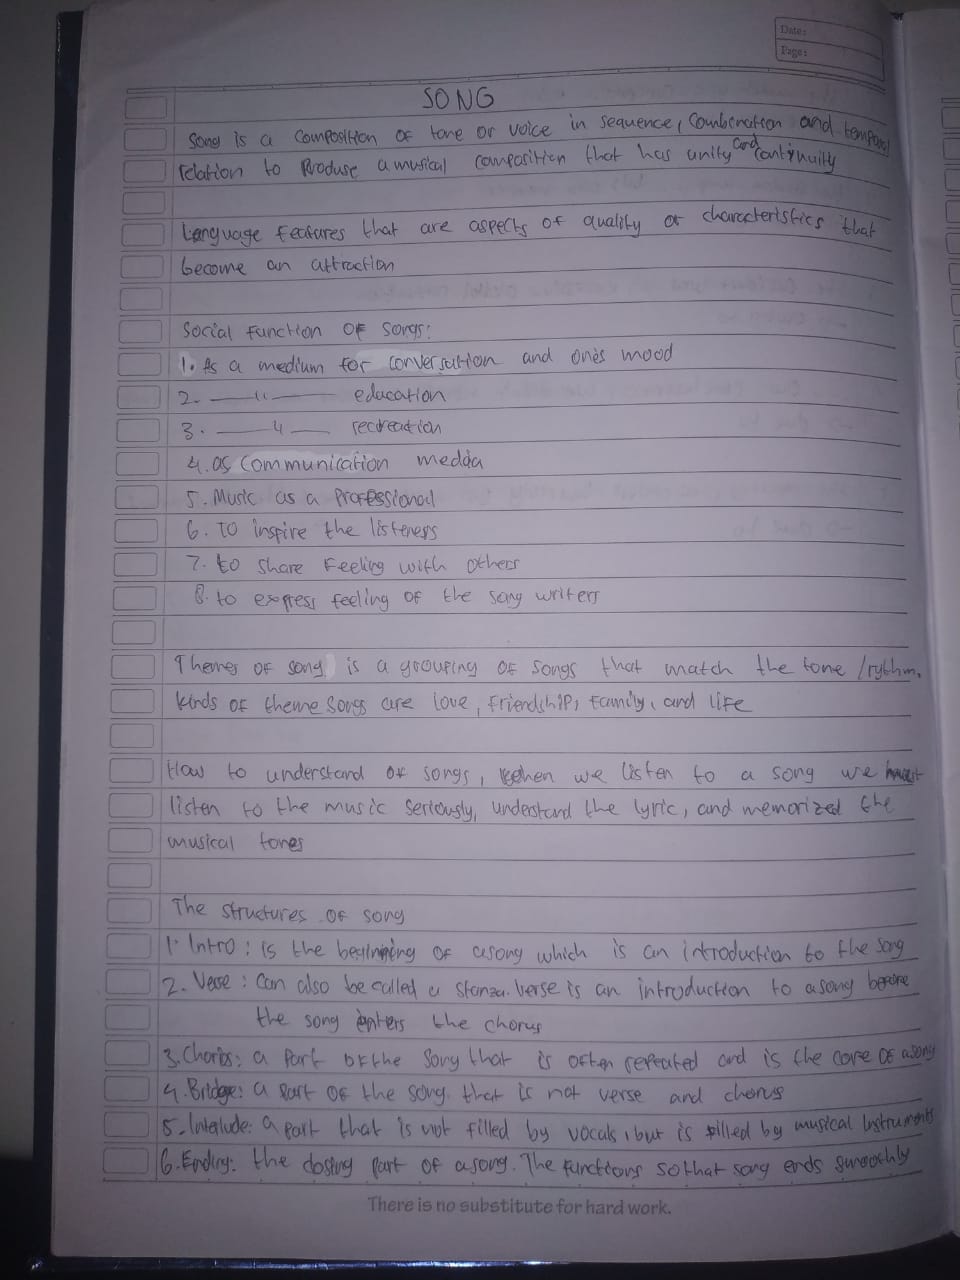 Date:
Page:
SONG
Song is a composition of tone or voice in sequence, combination and temporal
relation to produse a musical composition that has unity and continuity
Language features that are aspects of quality or characteristics that
become an attraction
Social function of songs:
1. As a medium for conversation and one's mood
2. —— " —— education
3. —— " —— recreation
4. as communication media
5. Music as a professional
6. to inspire the listeners
7. to share feeling with others
8. to express feeling of the song writers
Themes of song is a grouping of songs that match the tone / rythm.
kinds of theme songs are love, friendship, family, and life
How to understand of songs, when we listen to a song we must
listen to the music seriously, understand the lyric, and memorized the
musical tones
The structures of song
1. Intro : is the beginning of a song which is an introduction to the song
2. Verse : can also be called a stanza. verse is an introduction to a song before
the song enters the chorus
3. Chorus: a part of the song that is often repeated and is the core of a song
4. Bridge: a part of the song that is not verse and chorus
5. Interlude: a part that is not filled by vocals, but is filled by musical instruments
6. Ending: the closing part of a song. The functions so that song ends smoothly
There is no substitute for hard work.